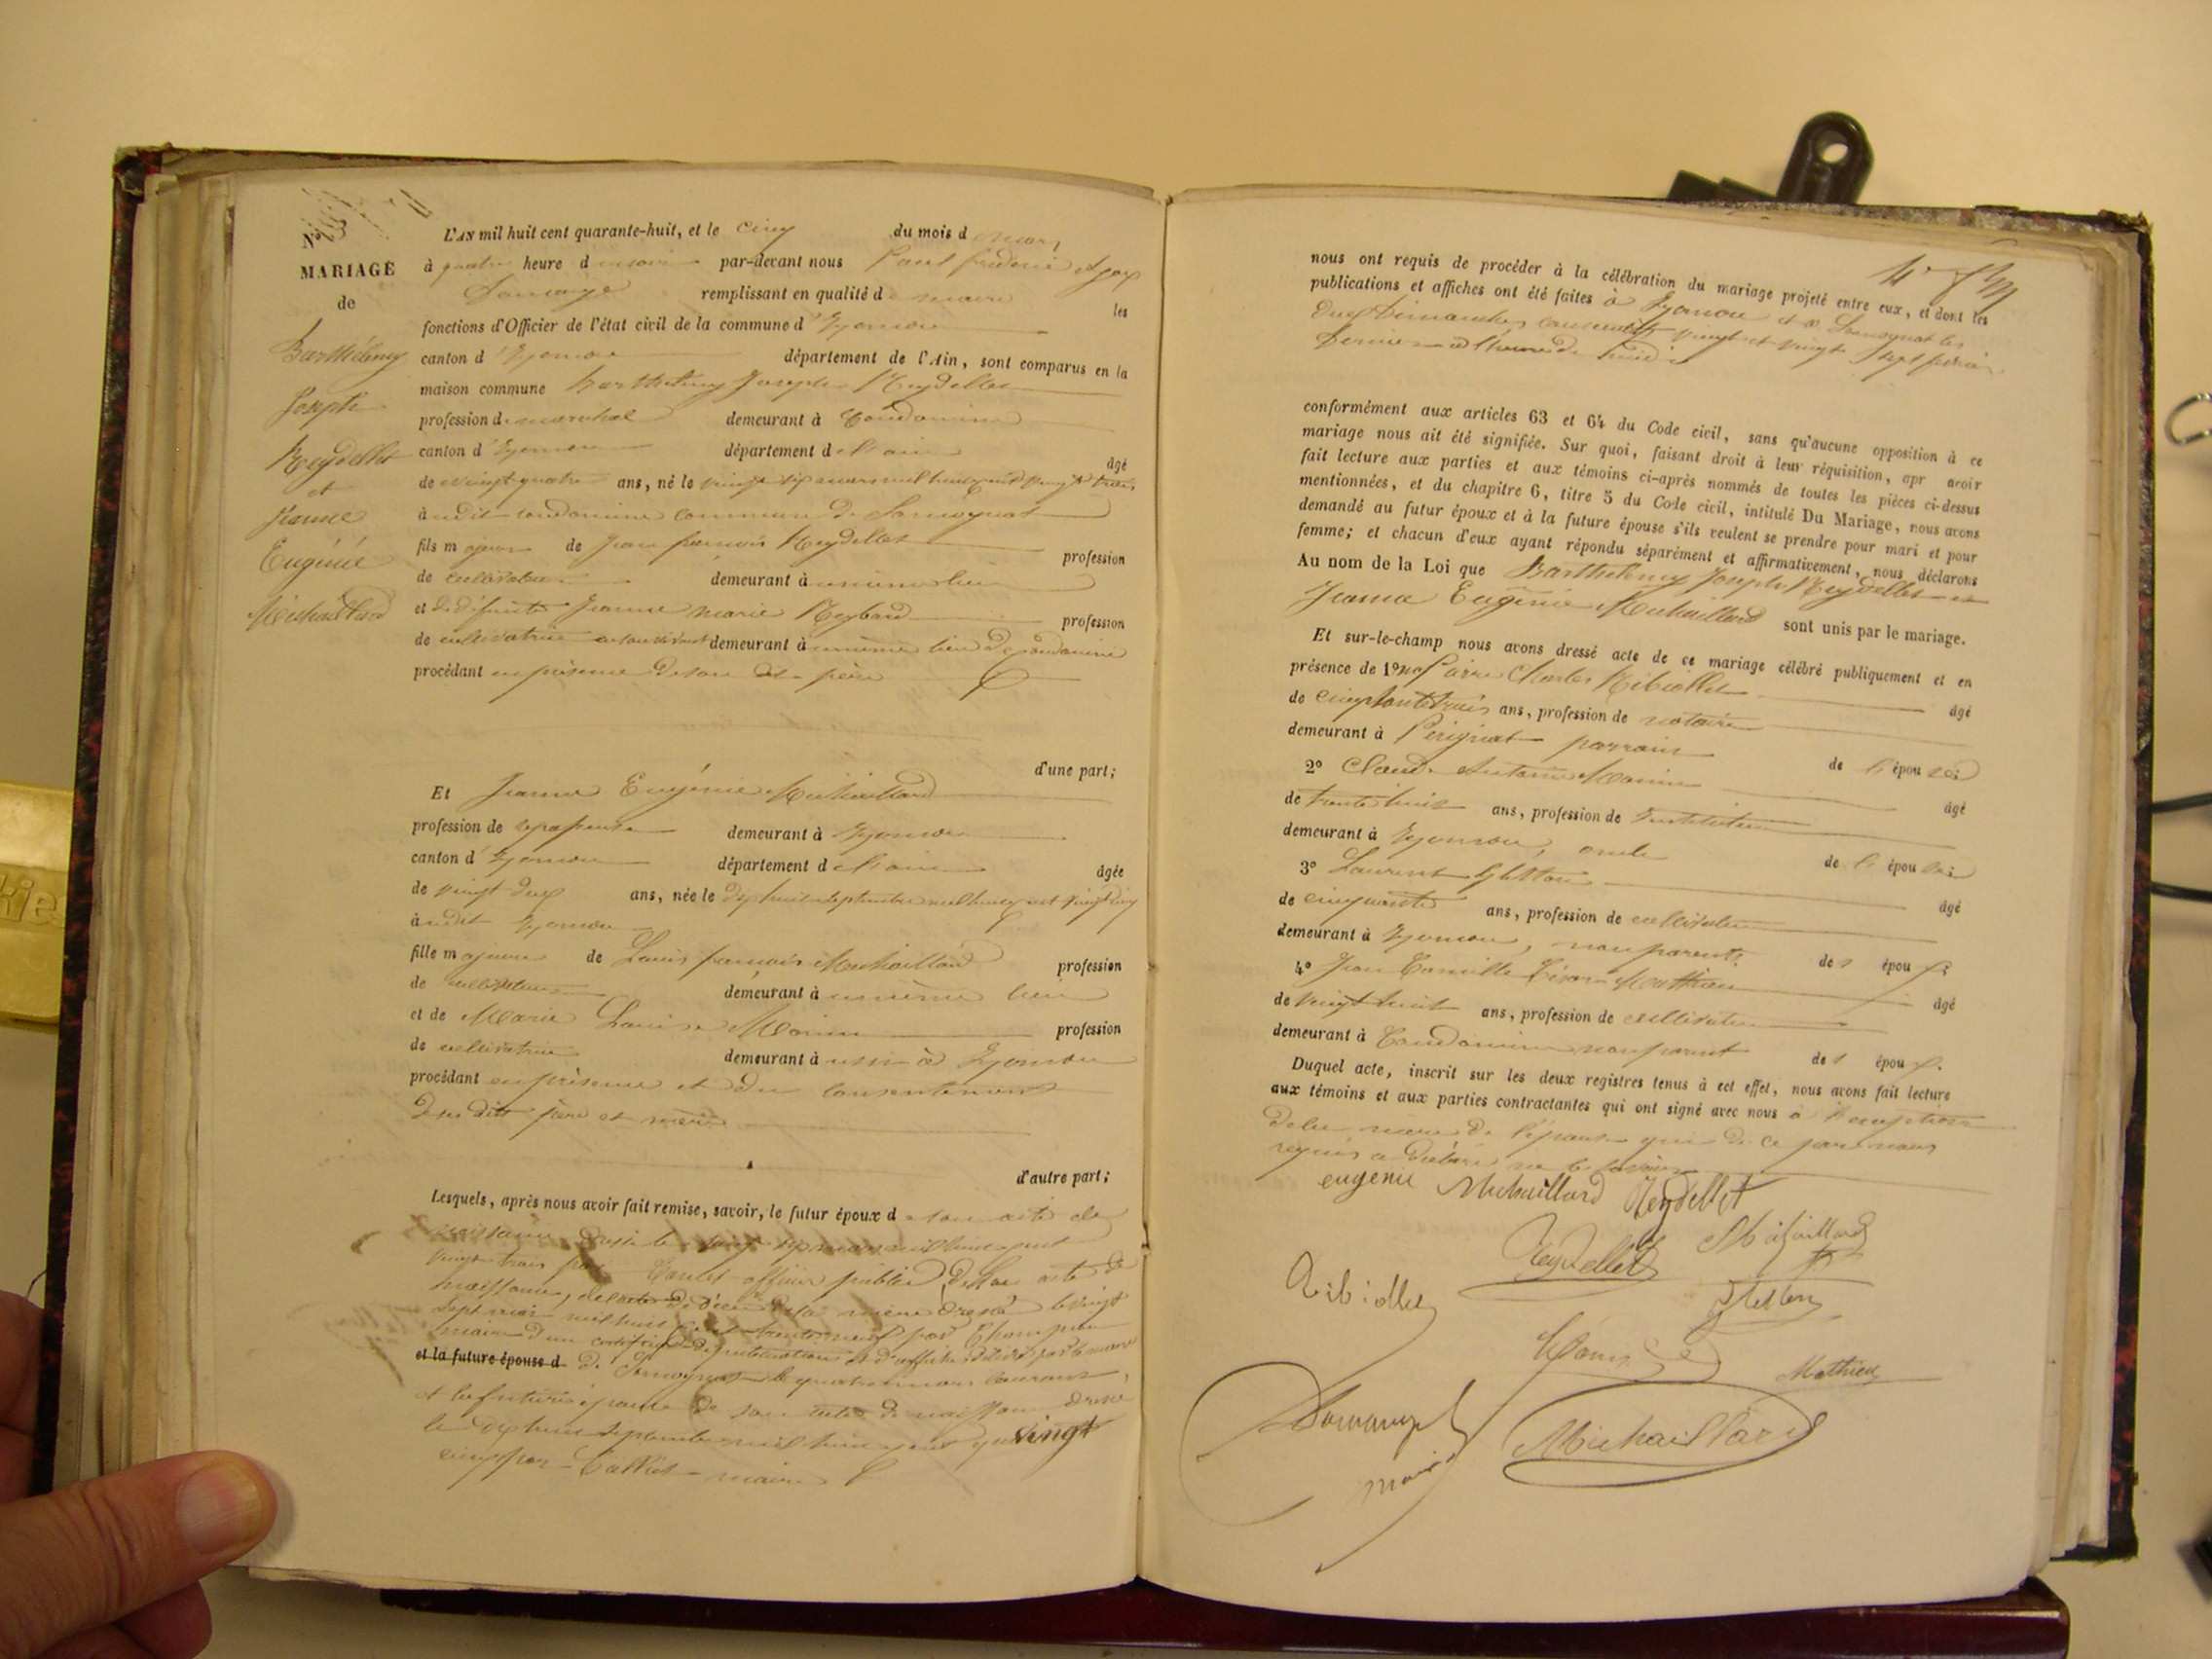 N°
MARIAGE
de
Barthélemy
Joseph
Reydellet
et
Jeanne
Eugénie
Michaillard
L'AN mil huit cent quarante-huit, et le cinq du mois d mars
à quatre heure d du soir par-devant nous Paul frédéric
Douange remplissant en qualité de maire les
fonctions d'Officier de l'état civil de la commune d'Izernore
canton d'Izernore département de l'Ain, sont comparus en la
maison commune Barthélemy Joseph Reydellet
profession de maréchal demeurant à Condamine
canton d'Izernore département de l'ain âgé
de vingt quatre ans, né le vingt six mars mil huit cent vingt trois
à udit condamine commune de Samognat
fils majeur de Jean françois Reydellet profession
de cultivateur demeurant à u même lieu
et de défunte Jeanne marie Reybard profession
de cultivatrice de son vivant demeurant à u même lieu de Condamine
procédant en présence de son dit père
d'une part;
Et Jeanne Eugénie Michaillard
profession de repasseuse demeurant à Izernore
canton d'Izernore département de l'ain âgée
de vingt deux ans, née le dix huit septembre mil huit cent vingt cinq
à udit Izernore
fille majeure de Louis françois Michaillard profession
de cultivateur demeurant à u même lieu
et de Marie Louise Monin profession
de cultivatrice demeurant à ussi à Izernore
procédant en présence et du consentement
de ses dits père et mère
d'autre part;
Lesquels, après nous avoir fait remise, savoir, le futur époux d e son acte de
naissance dressé le vingt six mars mil huit cent
vingt trois par officier public de son acte de
naissance, de l'acte de décès de sa mère dressé le vingt
sept mai mil huit cent trente neuf par
maire d'un certificat de publications et d'affiches délivré par le maire
et la future épouse d de Samognat le quatre mars courant,
et la future épouse de son acte de naissance dressé
le dix huit septembre mil huit cent vingt
cinq par maire
nous ont requis de procéder à la célébration du mariage projeté entre eux, et dont les
publications et affiches ont été faites à Izernore et à Samognat les
deux Dimanches consécutifs vingt et vingt sept février
Dernier à l'heure de midi
conformément aux articles 63 et 64 du Code civil, sans qu'aucune opposition à ce
mariage nous ait été signifiée. Sur quoi, faisant droit à leur réquisition, apr avoir
fait lecture aux parties et aux témoins ci-après nommés de toutes les pièces ci-dessus
mentionnées, et du chapitre 6, titre 5 du Code civil, intitulé Du Mariage, nous avons
demandé au futur époux et à la future épouse s'ils veulent se prendre pour mari et pour
femme; et chacun d'eux ayant répondu séparément et affirmativement, nous déclarons
Au nom de la Loi que Barthélemy Joseph Reydellet et
Jeanne Eugénie Michaillard sont unis par le mariage.
Et sur-le-champ nous avons dressé acte de ce mariage célébré publiquement et en
présence de 1° Pierre Charles Ribiollet âgé
de cinquante trois ans, profession de notaire
demeurant à Perignat parrain de l'épouse
2° Claude Antoine Monin âgé
de trente huit ans, profession de Instituteur
demeurant à Izernore, oncle de l'épouse
3° Laurent âgé
de cinquante ans, profession de cultivateur
demeurant à Izernore, non parent des époux
4° Jean Camille César Mathieu âgé
de vingt huit ans, profession de cultivateur
demeurant à Condamine non parent des époux.
Duquel acte, inscrit sur les deux registres tenus à cet effet, nous avons fait lecture
aux témoins et aux parties contractantes qui ont signé avec nous à l'exception
de la mère de l'épouse qui de ce par nous
requis a déclaré ne le savoir
eugenie Michaillard Reydellet
Reydellet Michaillard
Ribiollet
Monin
Mathieu
maire
Michaillard